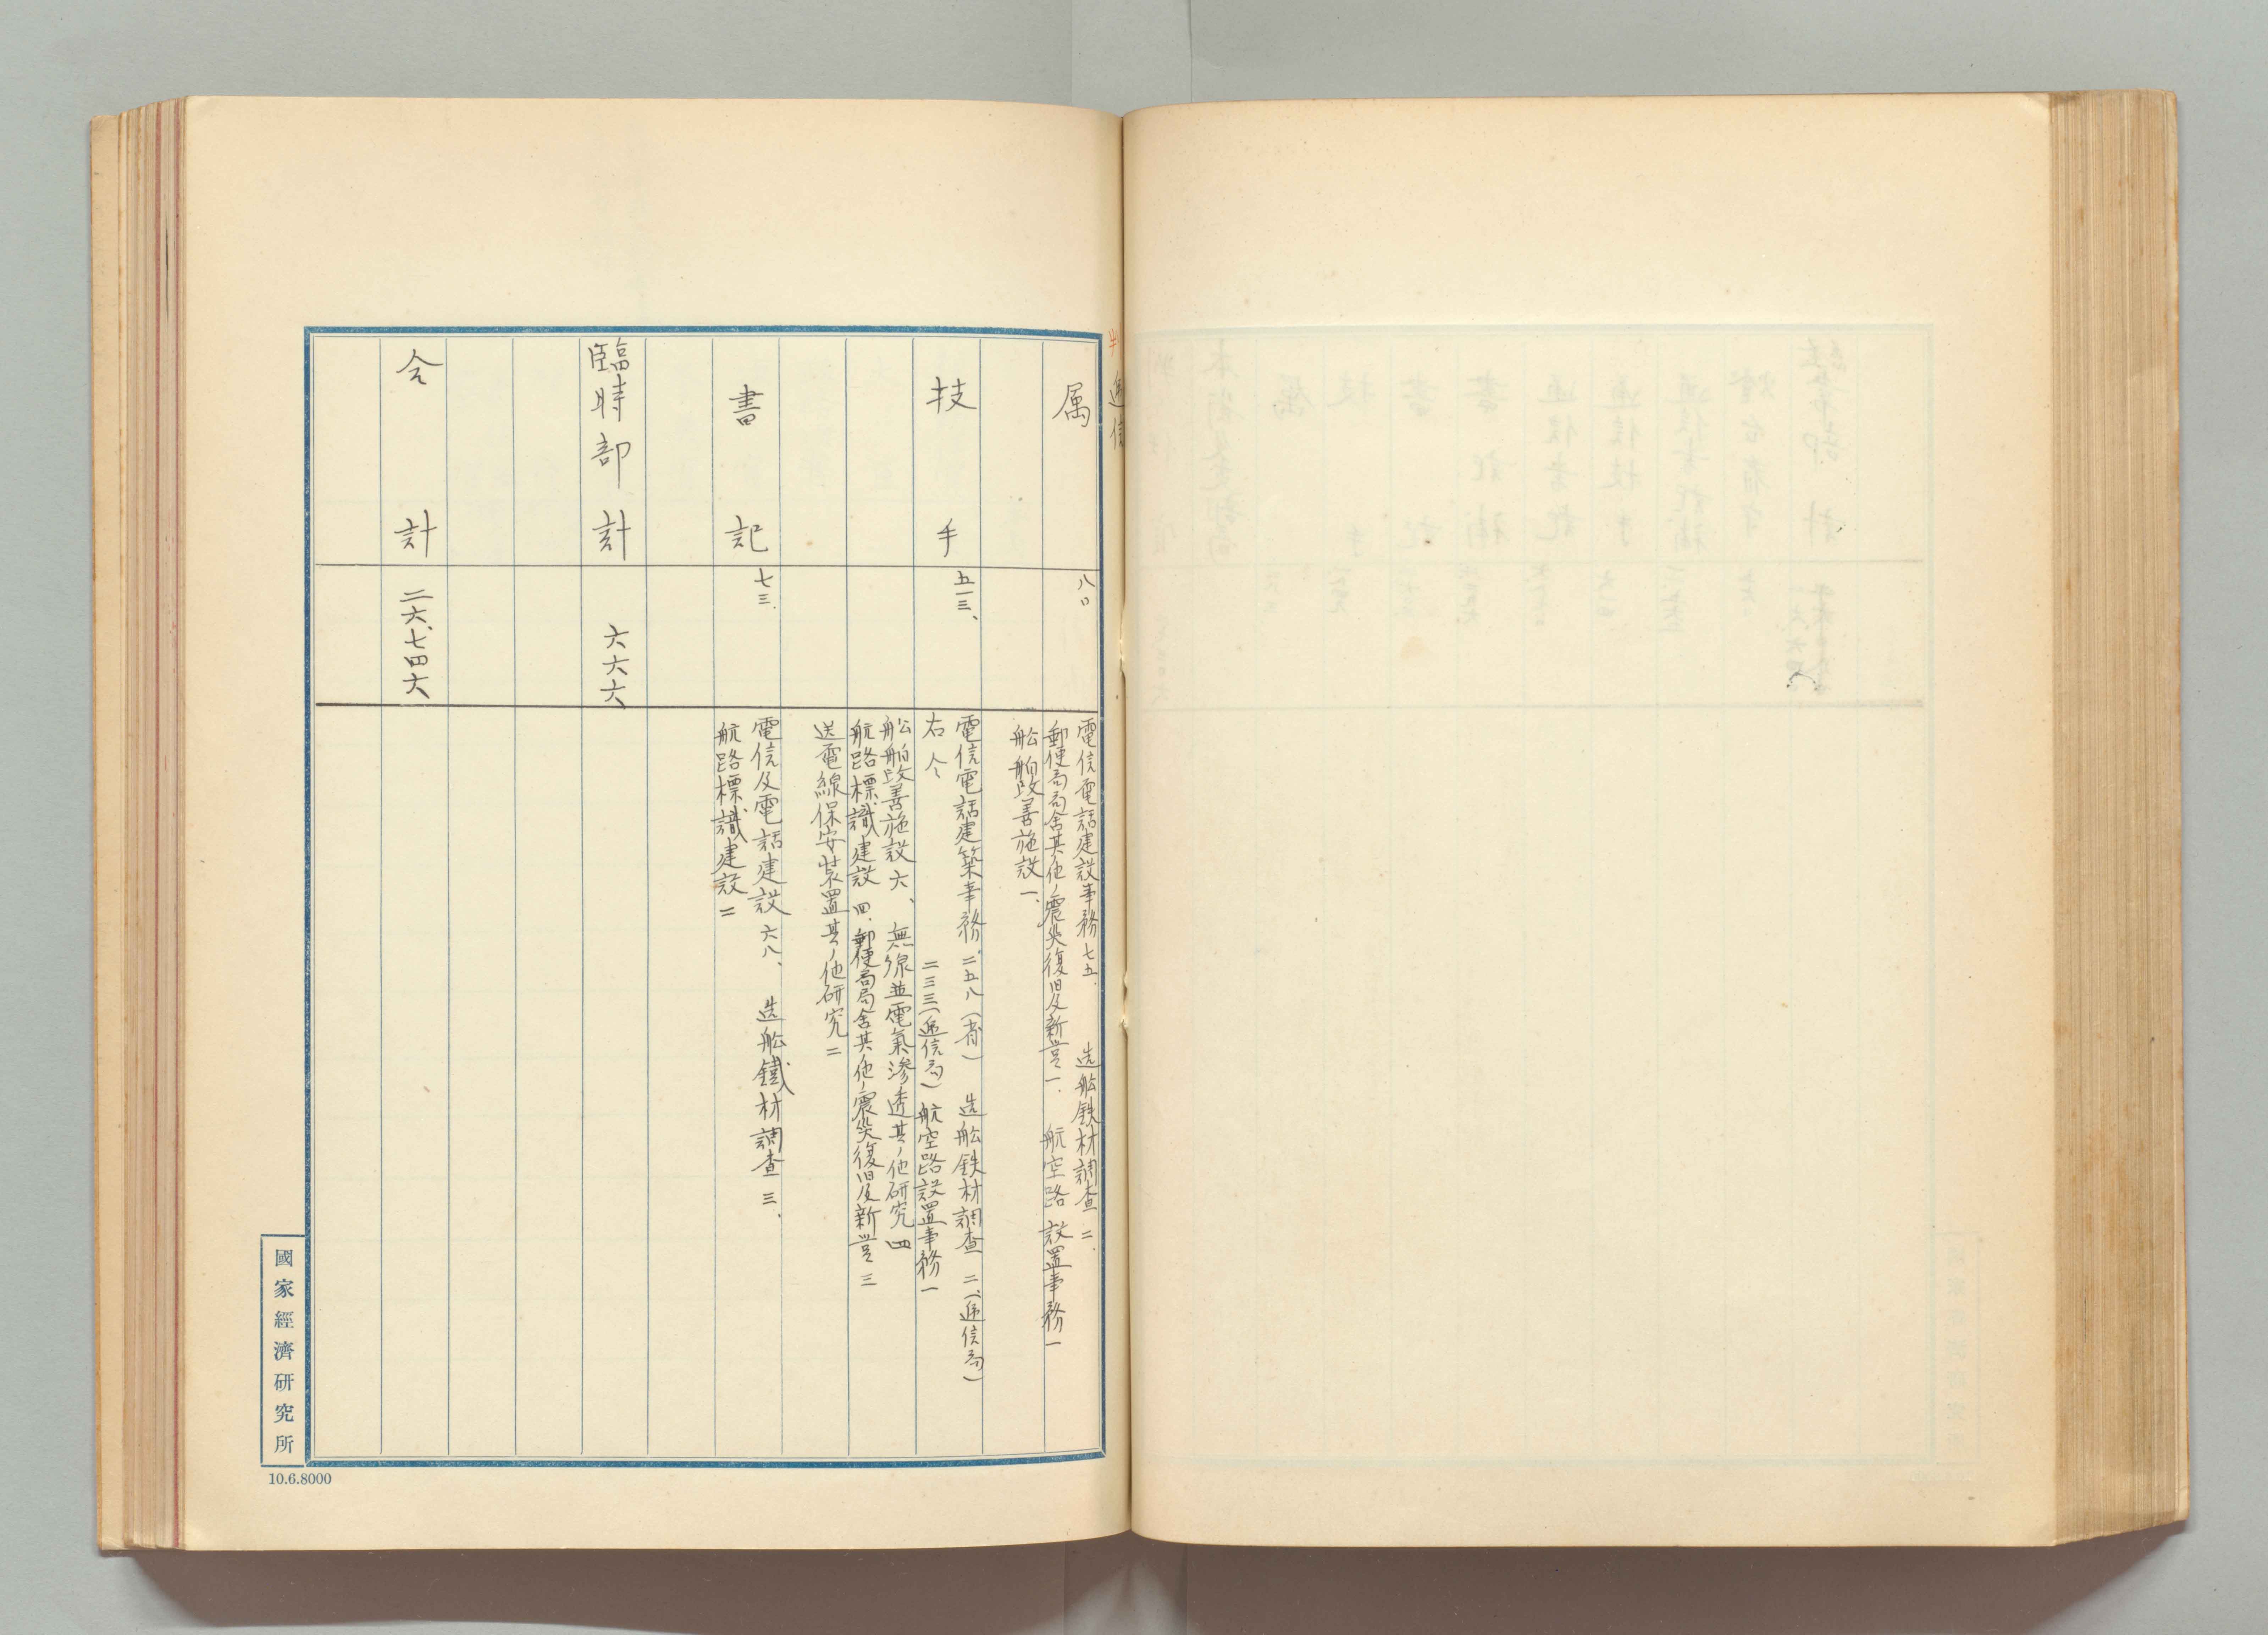 判
遞信
属
八〇
電信電話建設事務 七五、 造舩鉄材調査 二、
郵便局局舎其ノ他ノ震災復旧及新営 一、 航空路設置事務 一
舩舶改善施設 一、
技手
五一三、
電信電話建築事務 二五八(省) 造舩鉄材調査 二、(遞信局)
右仝 二三三(遞信局) 航空路設置事務 一
舩舶改善施設 六、 無線並電氣滲透其ノ他研究 四
航路標識建設 四、郵便局局舎其ノ他ノ震災復旧及新営 三
送電線保安装置其ノ他研究 二
書記
七三、
電信及電話建設 六八、 造舩鐵材調査 三、
航路標識建設 二
臨時部計
六六六
仝計
二六、七四六
國家經濟研究所
10.6.8000